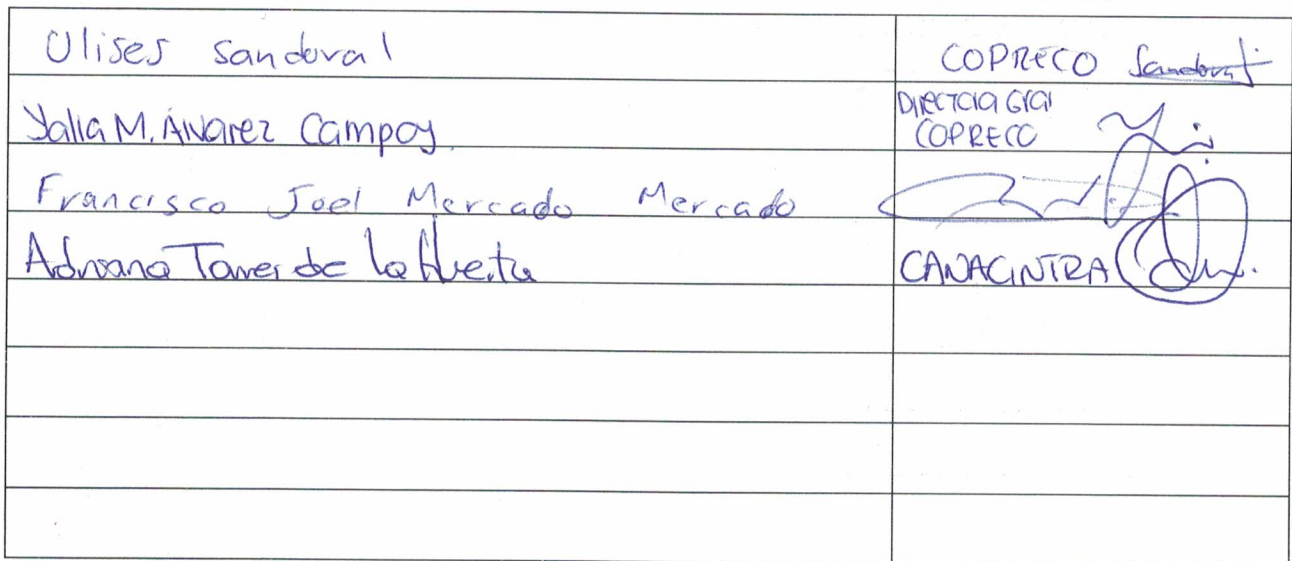 Ulises Sandoval COPRECO Sandoval
Yalia M. Álvarez Campoy DIRECTORA Gral
COPRECO
Francisco Joel Mercado Mercado
Adriana Torres de la Huerta CANACINTRA